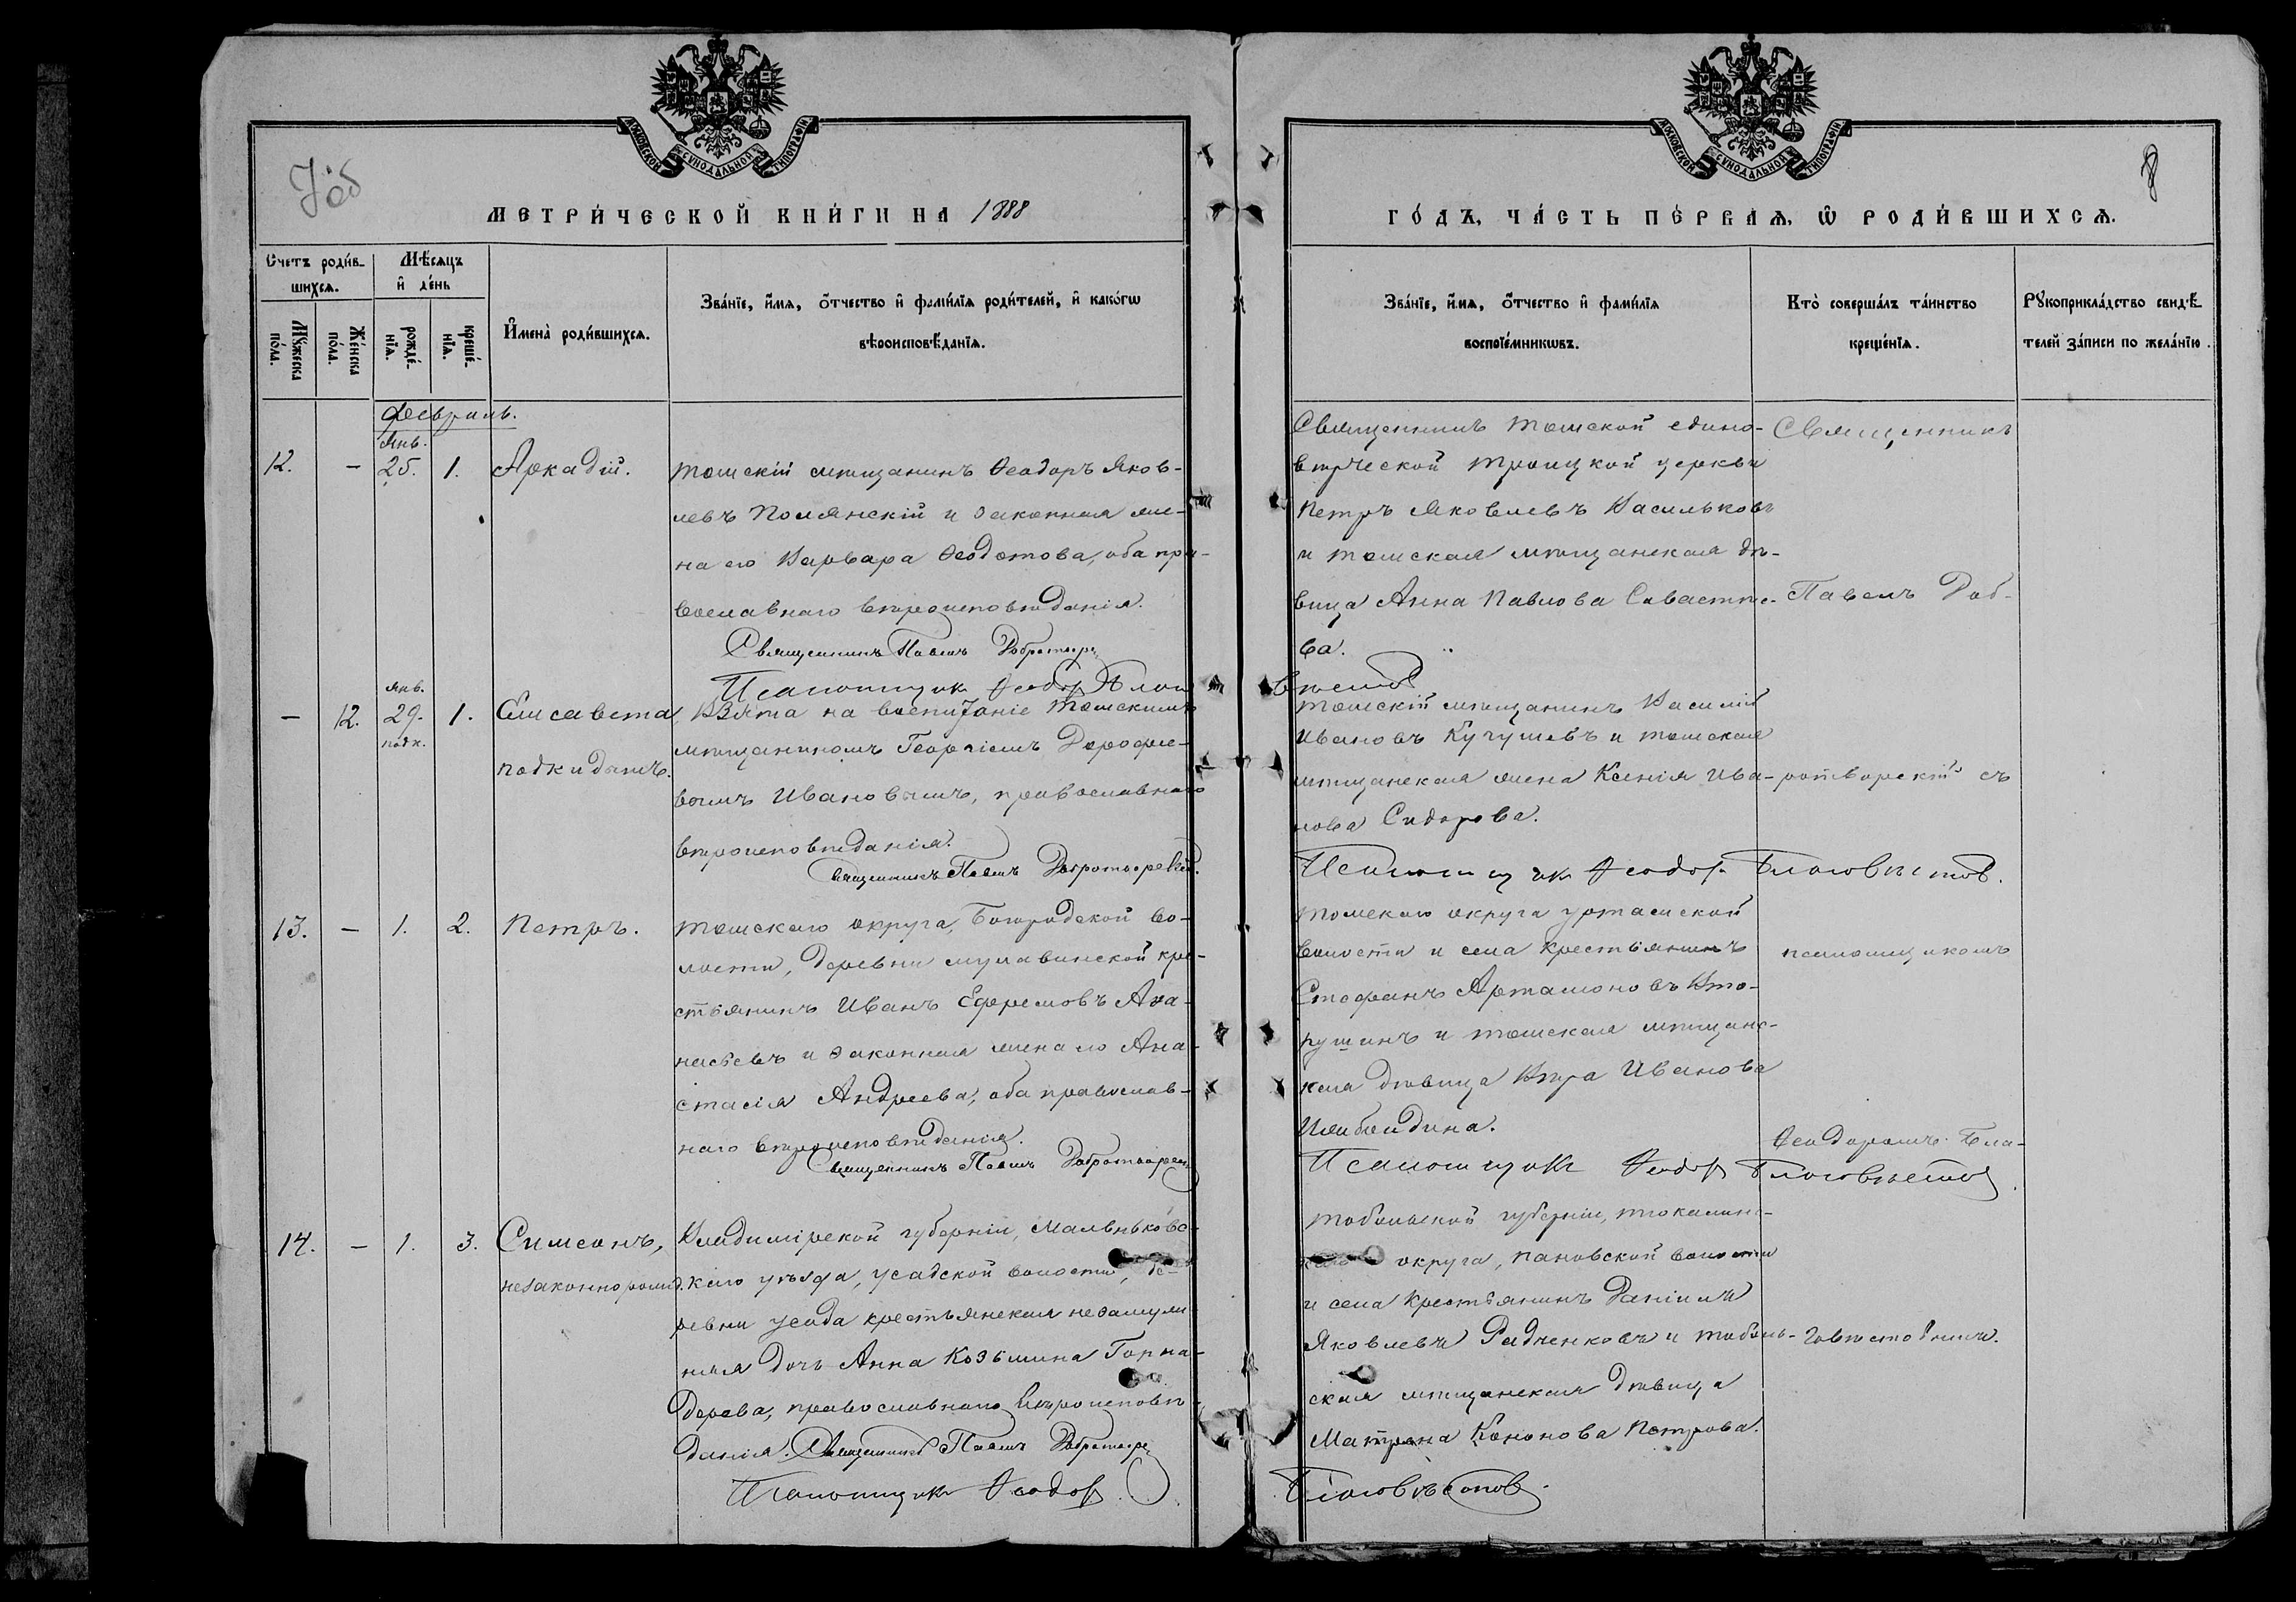 МОСКОВСКОЙ СУНОДАЛЬНОЙ ТИПОГРАФІИ
МЕТРИ́ЧЕСКОЙ КНИ́ГИ НА 1888
Счетъ роди́в-
шихся.
Мѣ́сяцъ
и де́нь
Му́жеска по́ла.
Же́нска по́ла.
рожде́-
нїя.
креще́-
нїя.
Имена̀ роди́вшихся.
Зва́нїе, и́мя, о́тчество и фами́лїя роди́телей, и како́гѡ
вѣроисповѣ́данїя.
Февраль.
Янв.
12. — 25. 1. Аркадій.
Томскій мѣщанинъ Ѳеодоръ Яков-
левъ Полянскій и законная же-
на его Варвара Ѳеодотова, оба пра-
вославнаго вѣроисповѣданія.
Священникъ Павелъ Добротвор
Псаломщикъ Ѳеодор Благ
янв.
— 12. 29. 1. Елисавета
подк.
подкидышъ.
Взята на воспитаніе Томскимъ
мѣщаниномъ Георгіемъ Дорофее-
вымъ Ивановымъ, православнаго
вѣроисповѣданія.
Священникъ Павелъ Добротворскій.
13. — 1. 2. Петръ.
Томскаго округа, Богородской во-
лости, деревни мулавинской кре-
стьянинъ Иванъ Ефремовъ Ана-
насьевъ и законная жена его Ана-
стасія Андреева, оба православ-
наго вѣроисповѣданія.
Священникъ Павелъ Добротворск
14. — 1. 3. Симеонъ,
незаконнорожд.
Владимірской губерніи, Маленковс-
каго уѣзда, усадской волости, де-
ревни усада крестьянская незамуж-
няя дочь Анна Козьмина Горна-
дерова, православнаго вѣроисповѣ-
данія. Священникъ Павелъ Добротвор
Псаломщикъ Ѳеодор
МОСКОВСКОЙ СУНОДАЛЬНОЙ ТИПОГРАФІИ
8
ГО́ДЪ, ЧА́СТЬ ПЕ́РВАЯ, Ѡ РОДИ́ВШИХСЯ.
Зва́нїе, и́мя, о́тчество и фами́лїя
воспрїе́мникѡвъ.
Кто̀ соверша́лъ та́инство
креще́нїя.
Рꙋкоприкла́дство свидѣ́-
телей за́писи по жела́нїю.
Священникъ Томской едино-
вѣрческой Троицкой церкви
Петръ Яковлевъ Васильковъ
и томская мѣщанская дѣ-
вица Анна Павлова Савастѣе-
ва.
вѣстов
Священникъ
Павелъ Доб-
Томскій мѣщанинъ Василій
Ивановъ Кугушевъ и томская
мѣщанская жена Ксенія Ива-
нова Сидорова.
ротворскій съ
Псаломщикъ Ѳеодор Благовѣстов.
Томскаго округа уртамской
волости и села крестьянинъ
Стефанъ Артамоновъ Вто-
рушинъ и томская мѣщанс-
кая дѣвица Вѣра Иванова
Шабалдина.
псаломщикомъ
Ѳеодоромъ Бла-
Псаломщикъ Ѳеодор Благовѣстов.
Тобольской губерніи, тюкалинс-
каго округа, пановской волости
и села крестьянинъ Даніилъ
Яковлевъ Радченковъ и тоболь-
ская мѣщанская дѣвица
Матрона Кононова Петрова.
говѣстовымъ.
Благовѣстов.